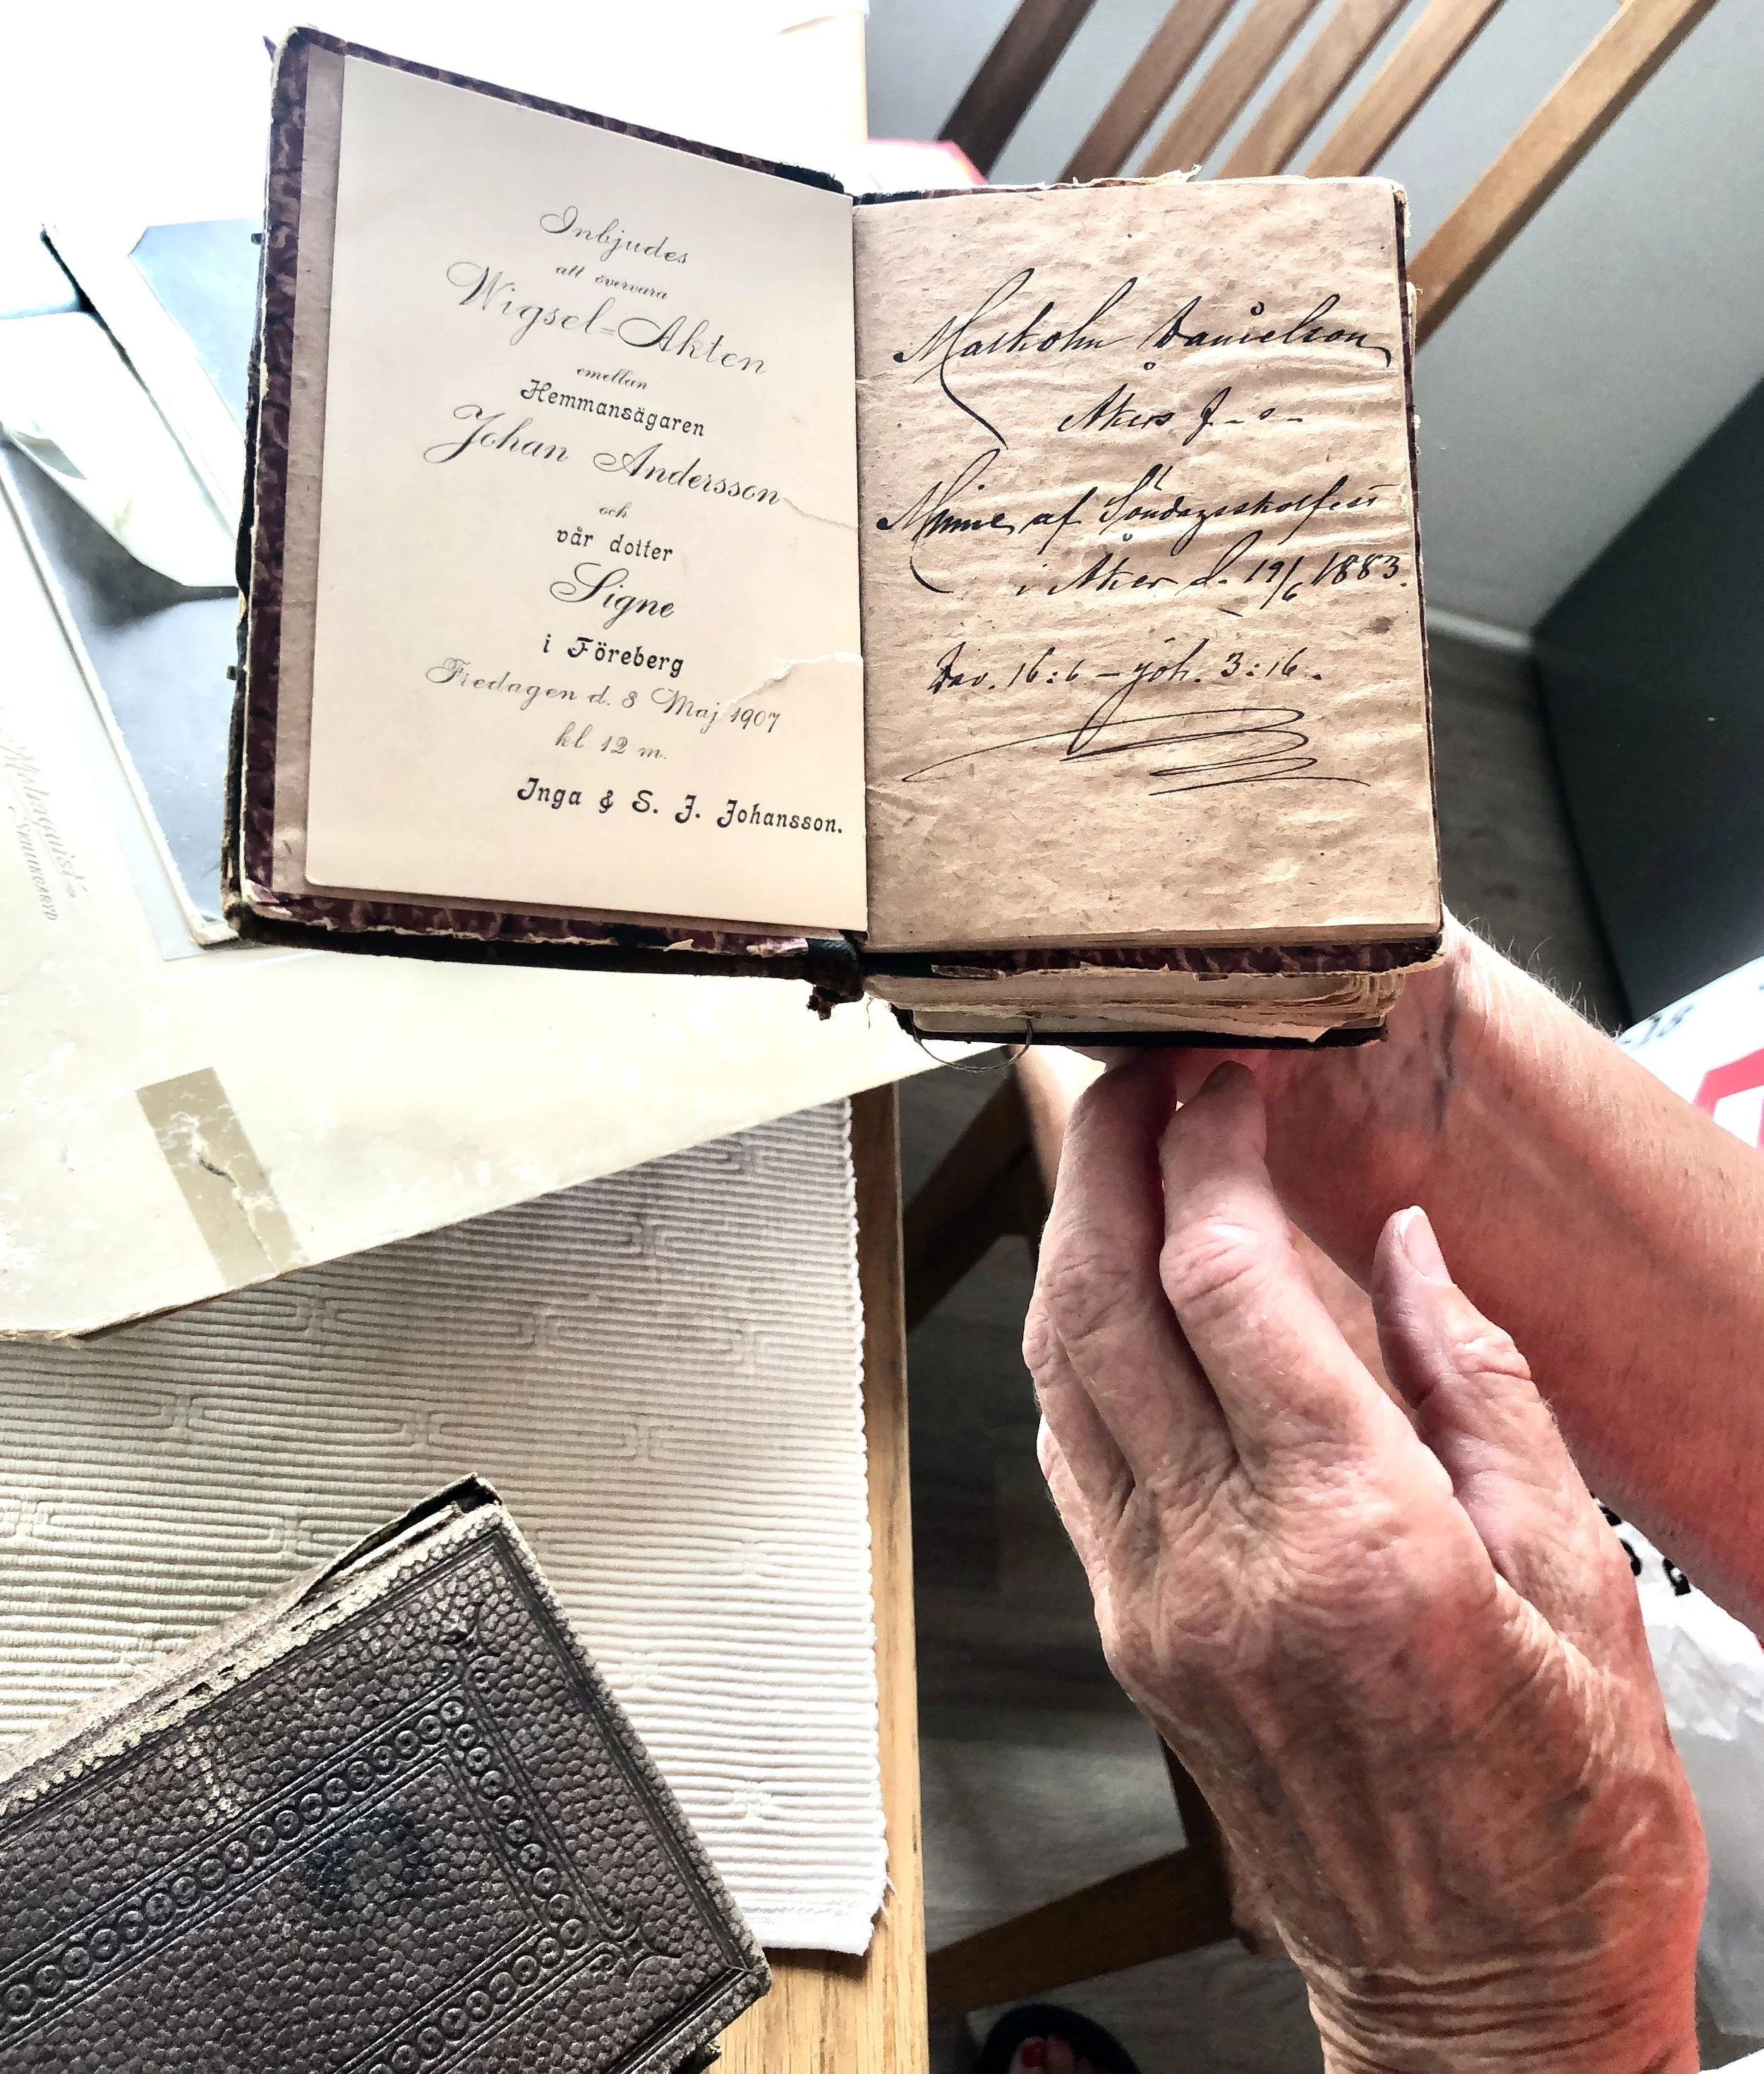 Inbjudes
att övervara
Wigsel-Akten
emellan
Hemmansägaren
Johan Andersson
och
vår dotter
Signe
i Föreberg
Fredagen d. 3 Maj 1907
kl 12 m.
Inga & S. J. Johansson.
Malkolm Danielson
Åkers
Minne af Söndagsskolfest
i Åker d. 19/6 1883.
16:6 – Joh. 3:16.